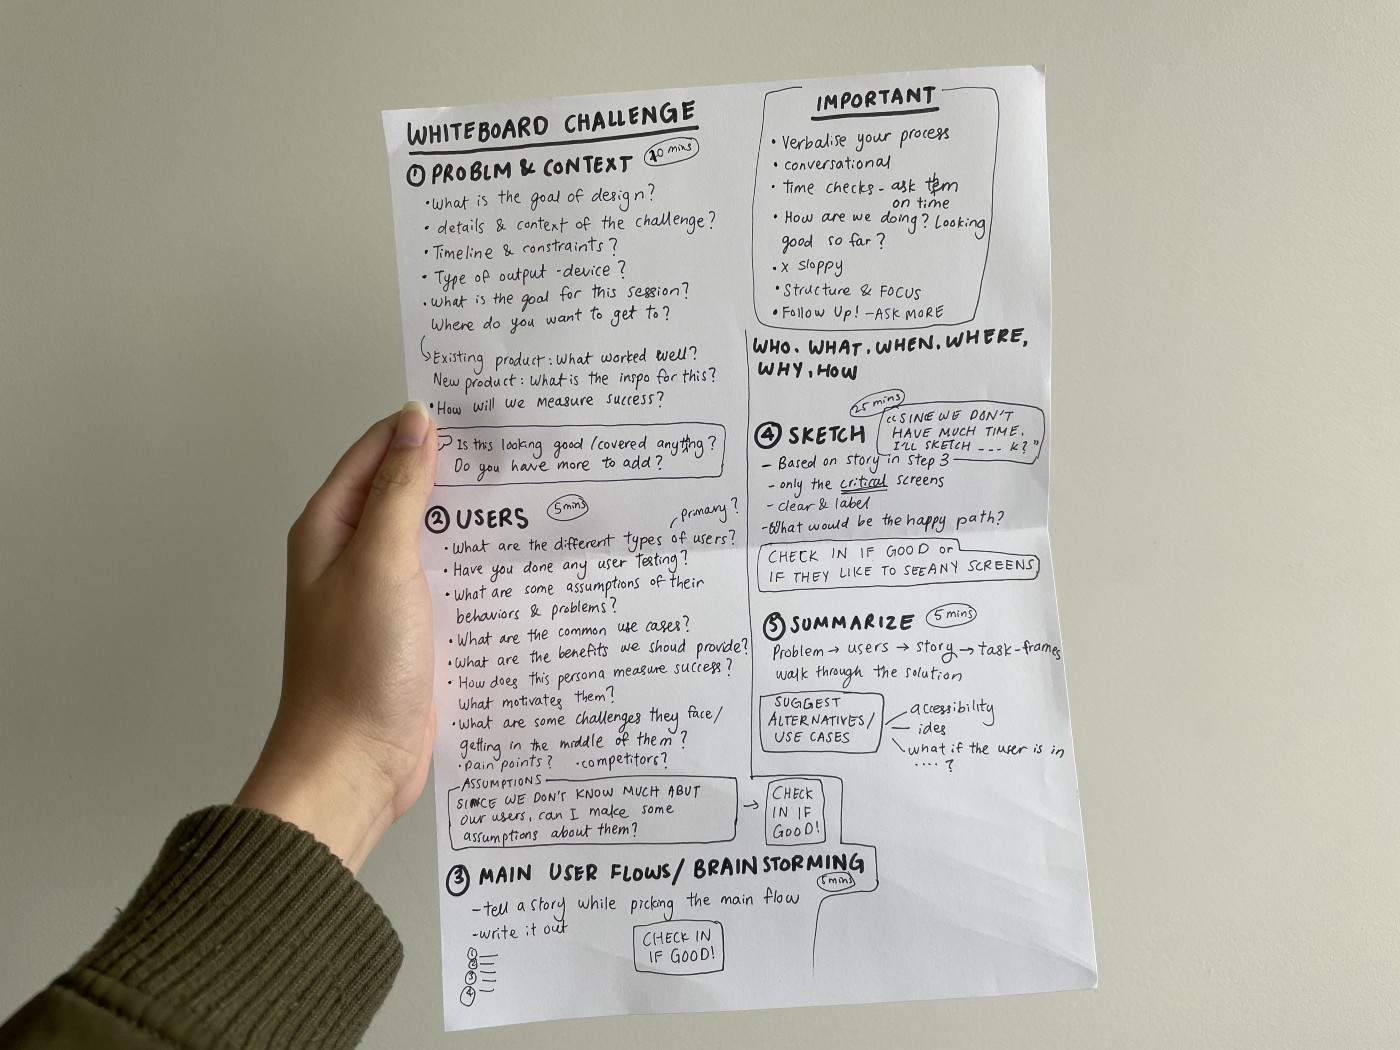 WHITEBOARD CHALLENGE
① PROBLM & CONTEXT
mins
• What is the goal of design?
• details & context of the challenge?
• Timeline & constraints?
• Type of output - device?
• What is the goal for this session?
Where do you want to get to?
Existing product: What worked well?
New product: What is the inspo for this?
• How will we measure success?
Is this looking good / covered anything?
Do you have more to add?
② USERS
5 mins
primary?
• What are the different types of users?
• Have you done any user testing?
• What are some assumptions of their
behaviors & problems?
• What are the common use cases?
• What are the benefits we shoud provide?
• How does this persona measure success?
What motivates them?
• What are some challenges they face/
getting in the middle of them?
• pain points? • competitors?
ASSUMPTIONS
SINCE WE DON'T KNOW MUCH ABUT
our users, can I make some
assumptions about them?
→ CHECK
IN IF
GOOD!
③ MAIN USER FLOWS/ BRAINSTORMING
5 mins
- tell a story while picking the main flow
- write it out
①
②
③
④
CHECK IN
IF GOOD!
IMPORTANT
• Verbalise your process
• conversational
• Time checks - ask them
on time
• How are we doing? Looking
good so far?
• x sloppy
• Structure & FOCUS
• Follow Up! - ASK MORE
WHO. WHAT. WHEN. WHERE,
WHY, HOW
25 mins
④ SKETCH
"SINE WE DON'T
HAVE MUCH TIME.
I'LL SKETCH ___ K?"
- Based on story in Step 3
- only the critical screens
- clear & label
- What would be the happy path?
CHECK IN IF GOOD or
IF THEY LIKE TO SEE ANY SCREENS
⑤ SUMMARIZE
5 mins
Problem → users → story → task-frames
walk through the solution
SUGGEST
ALTERNATIVES/
USE CASES
accessibility
ides
what if the user is in
....?